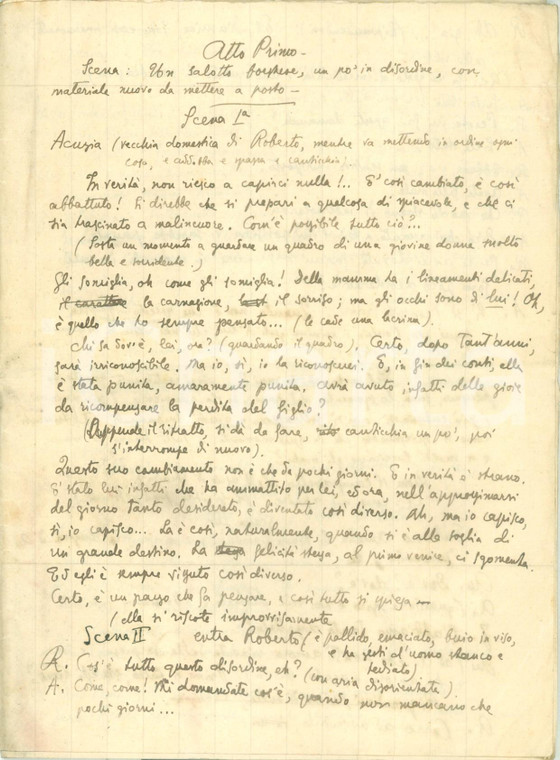 Atto Primo -
Scena: Un salotto borghese, un po' in disordine, con
materiale nuovo da mettere a posto -
Scena Iª
(vecchia domestica di Roberto, mentre va mettendo in ordine ogni
cosa, e e spazza e canticchia).
In verità, non riesco a capirci nulla!.. E' così cambiato, è così
abbattuto! Si direbbe che si prepari a qualcosa di spiacevole, e che ci
sia trascinato a malincuore. Com'è possibile tutto ciò?...
(Sosta un momento a guardare un quadro di una giovine donna molto
bella e sorridente.)
Gli somiglia, oh come gli somiglia! Della mamma ha i lineamenti delicati,
il carattere la carnagione, il sorriso; ma gli occhi sono di lui! Oh,
è quello che ho sempre pensato... (le cade una lacrima).
Chi sa dov'è, lei, ora? (guardando il quadro). Certo, dopo tant'anni,
sarà irriconoscibile. Ma io, sì, io la riconoscerei. E, in fin dei conti, ella
è stata punita, amaramente punita. Avrà avuto, infatti delle gioie
da ricompensare la perdita del figlio?
(Appende il ritratto, si dà da fare, canticchia un po', poi
s'interrompe di nuovo).
Questo suo cambiamento non è che da pochi giorni. E in verità è strano.
E' stato lui infatti che ha ammattito per lei, ed ora, nell'approssimarsi
del giorno tanto desiderato, è diventato così diverso. Ah, ma io capisco,
sì, io capisco... La è così, naturalmente, quando si è alle soglie di
un grande destino. La felicità stessa, al primo venire, ci sgomenta.
Ed egli è sempre vissuto così diverso.
Certo, è un passo che fa pensare, e così tutto si spiega -
(ella si riscote improvvisamente
Scena II entra Roberto (è pallido, emaciato, buio in viso,
e ha gesti d'uomo stanco e
tediato)
R. Cos'è tutto questo disordine, eh? (con aria disorientata).
A. Come, come! Mi domandate cos'è, quando non mancano che
pochi giorni...